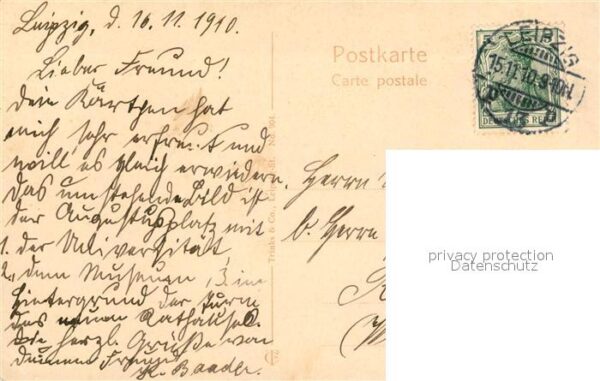 Leipzig, d. 16.11.1910.
Lieber Freund!
Dein Kärtchen hat
mich sehr erfreut und
will es gleich erwiedern.
Das umstehende Bild ist
der Augustusplatz mit
1. der Universität,
2. dem Museum, 3. im
Hintergrund der Turm
des neuen Rathauses.
Die herzl. Grüße von
deinem Freund
K. Baader.
Postkarte
Carte postale
LEIPZIG
15.11.10. 9-10
DEUTSCHES REICH
Trinks & Co., Leipzig
Herrn
b. Herrn
privacy protection
Datenschutz